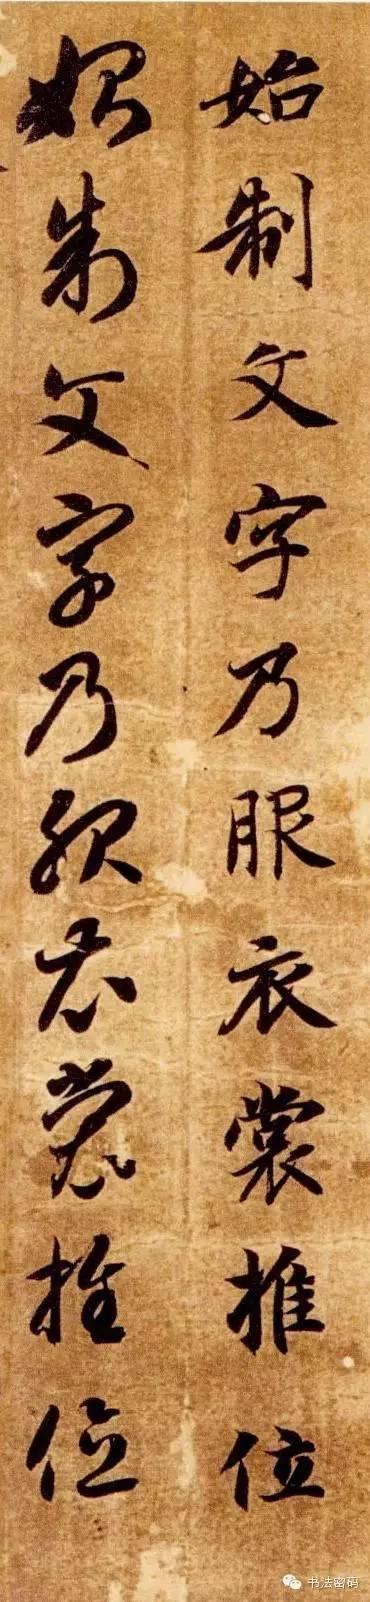 始制文字乃服衣裳推位
始制文字乃服衣裳推位
书法密码